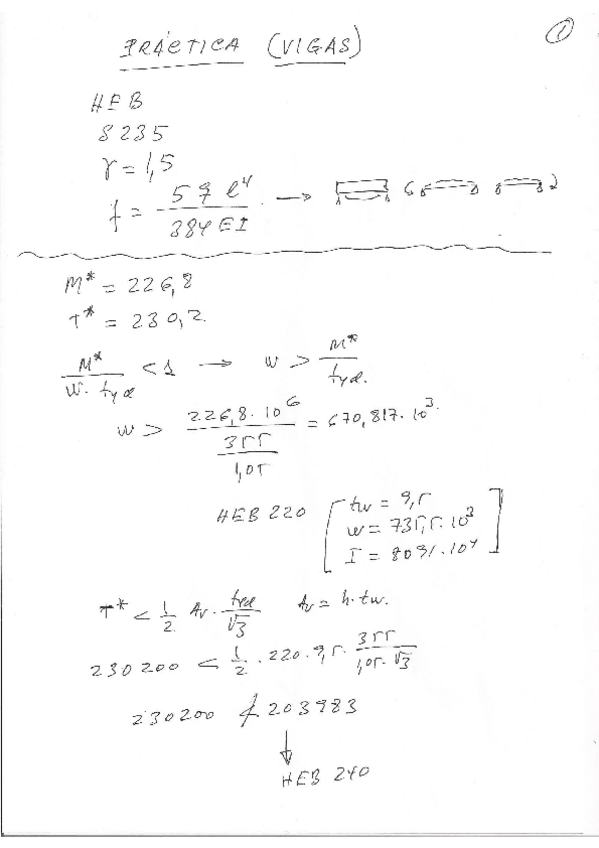 1
PRÁCTICA (VIGAS)
HEB
S235
γ = 1,5
f = 5 q l⁴ / 384 EI →
M* = 226,8
T* = 230,2
M* / W · fyd < 1 → w > M* / fyd
w > 226,8 · 10⁶ / (355 / 1,05) = 670,817 · 10³
HEB 220 [ tw = 9,5
w = 735,5 · 10³
I = 8091 · 10⁴ ]
T* < 1/2 Av · fyd / √3 Av = h · tw.
230200 < 1/2 · 220 · 9,5 · 355 / 1,05 · √3
230200 ≮ 203983
↓
HEB 240